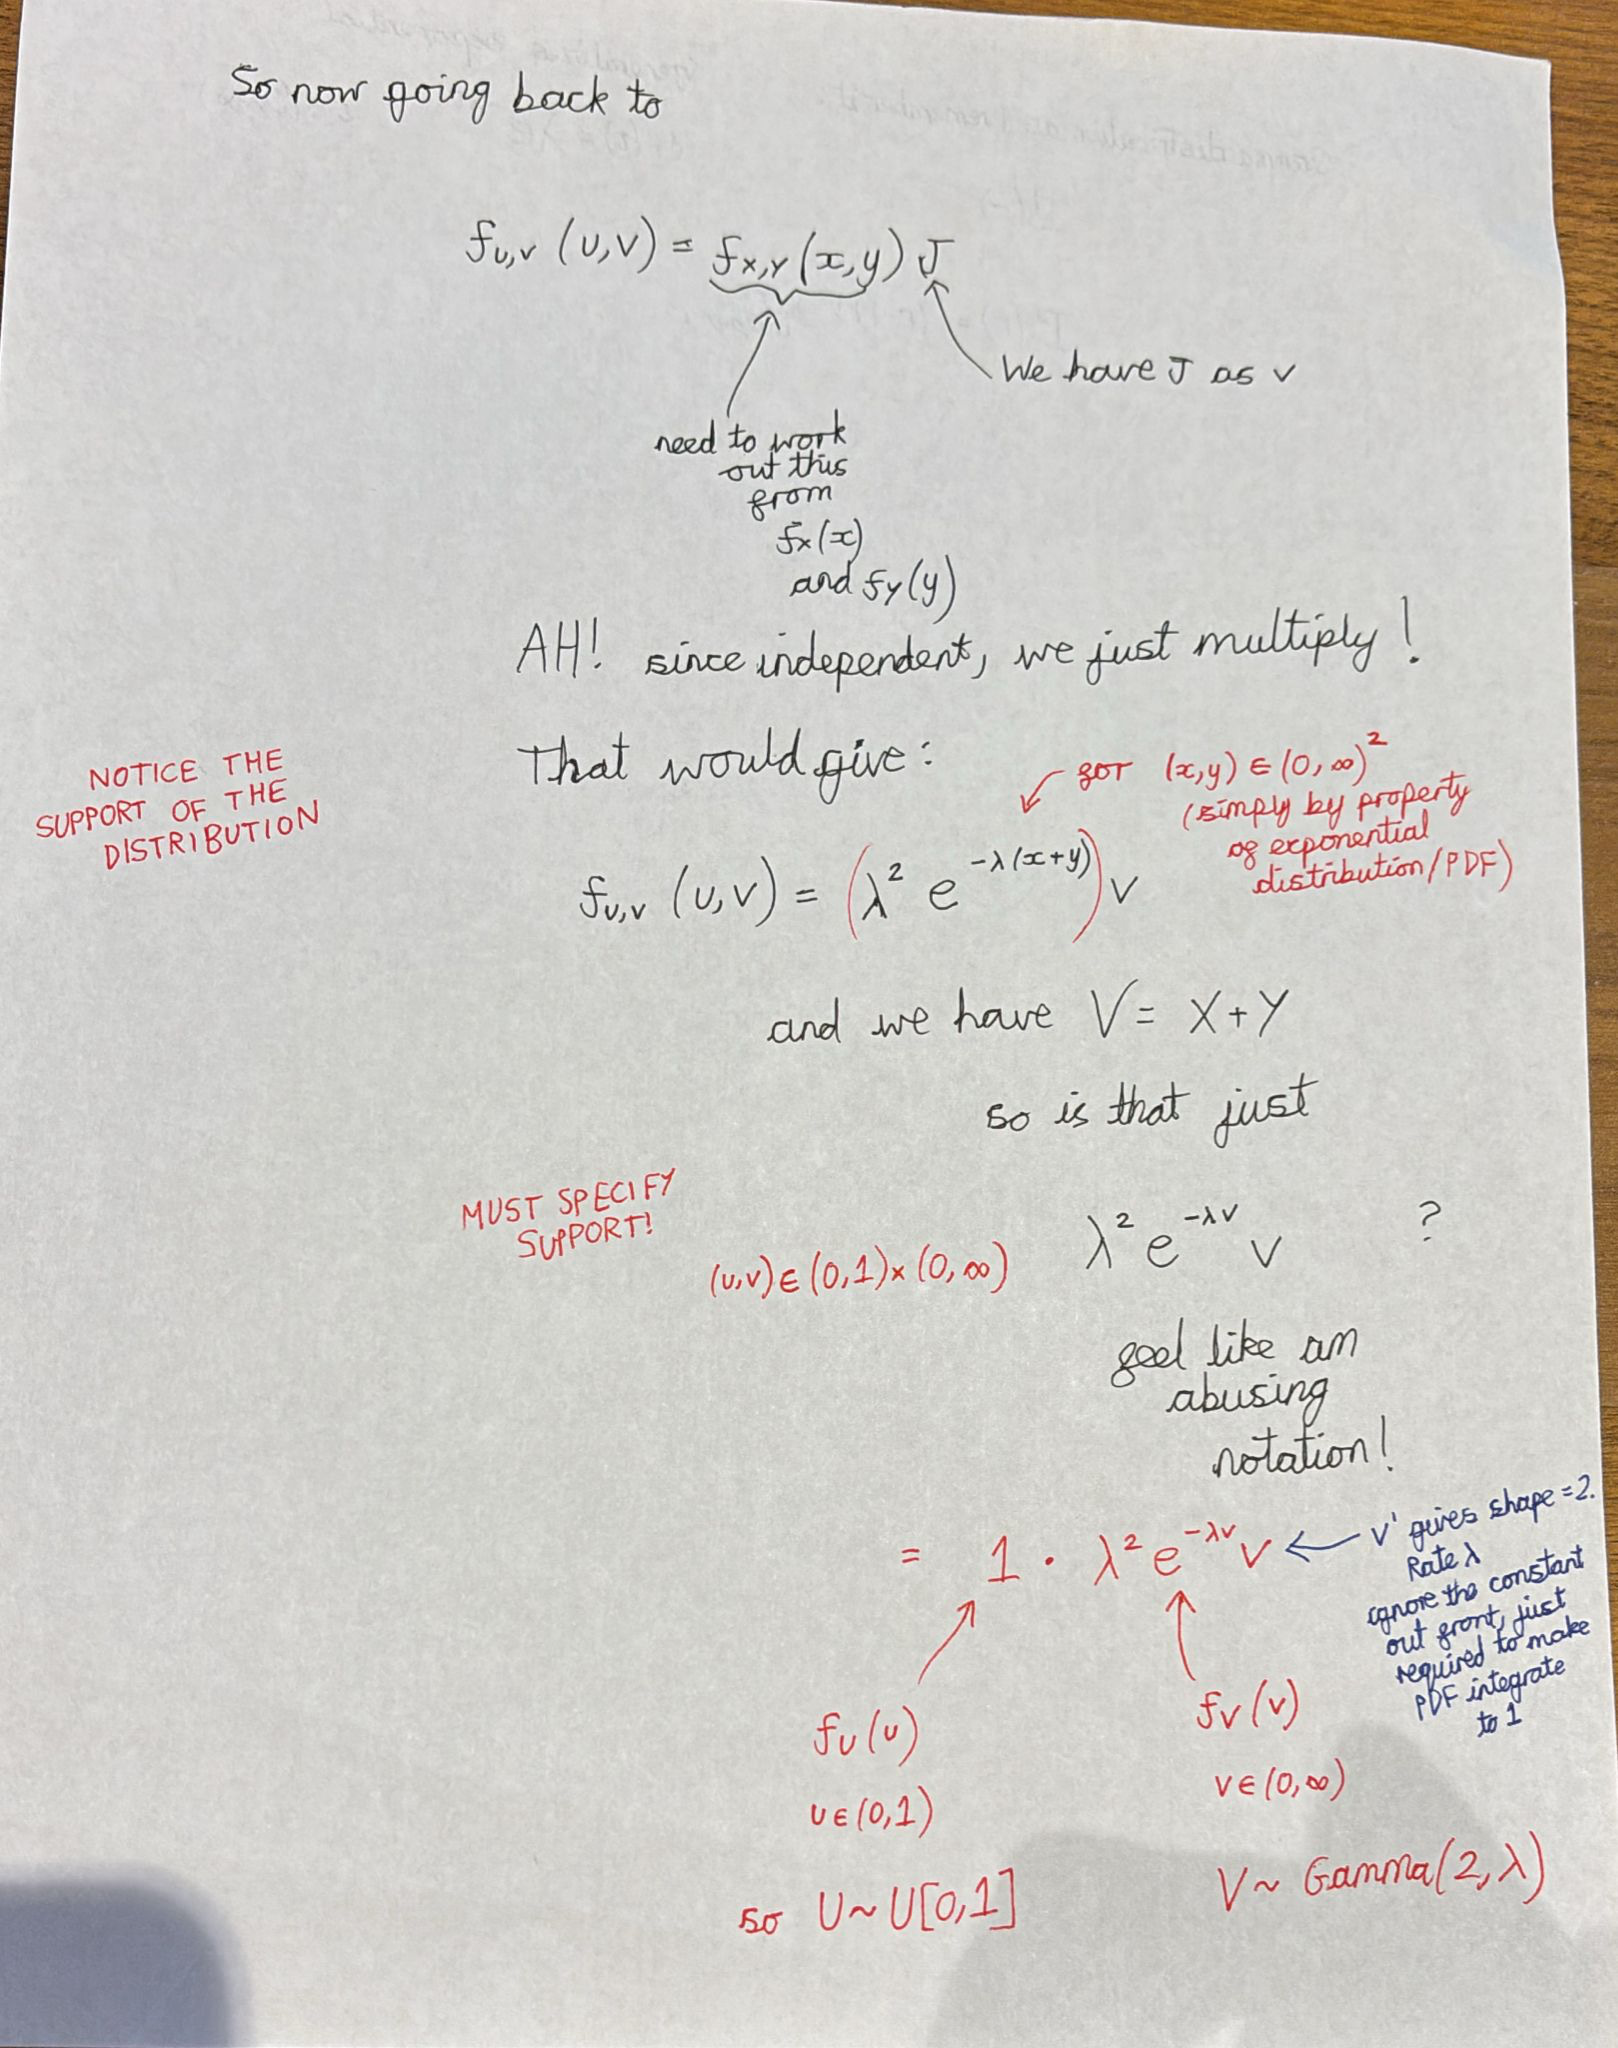 So now going back to
f_{U,V} (u,v) = f_{X,Y}(x,y) J
We have J as v
need to work
out this
from
f_X(x)
and f_Y(y)
AH! since independent, we just multiply!
That would give:
NOTICE THE
SUPPORT OF THE
DISTRIBUTION
for (x,y) ∈ (0,∞)²
(simply by property
of exponential
distribution/PDF)
f_{U,V} (u,v) = (λ² e^{-λ(x+y)}) v
and we have V = X+Y
so is that just
MUST SPECIFY
SUPPORT!
(u,v) ∈ (0,1)×(0,∞)
λ² e^{-λv} v ?
feel like am
abusing
notation!
= 1 · λ² e^{-λv} v
v¹ gives shape = 2.
Rate λ
ignore the constant
out front, just
required to make
PDF integrate
to 1
f_U(u)
u ∈ (0,1)
so U ~ U[0,1]
f_V(v)
v ∈ (0,∞)
V ~ Gamma(2,λ)